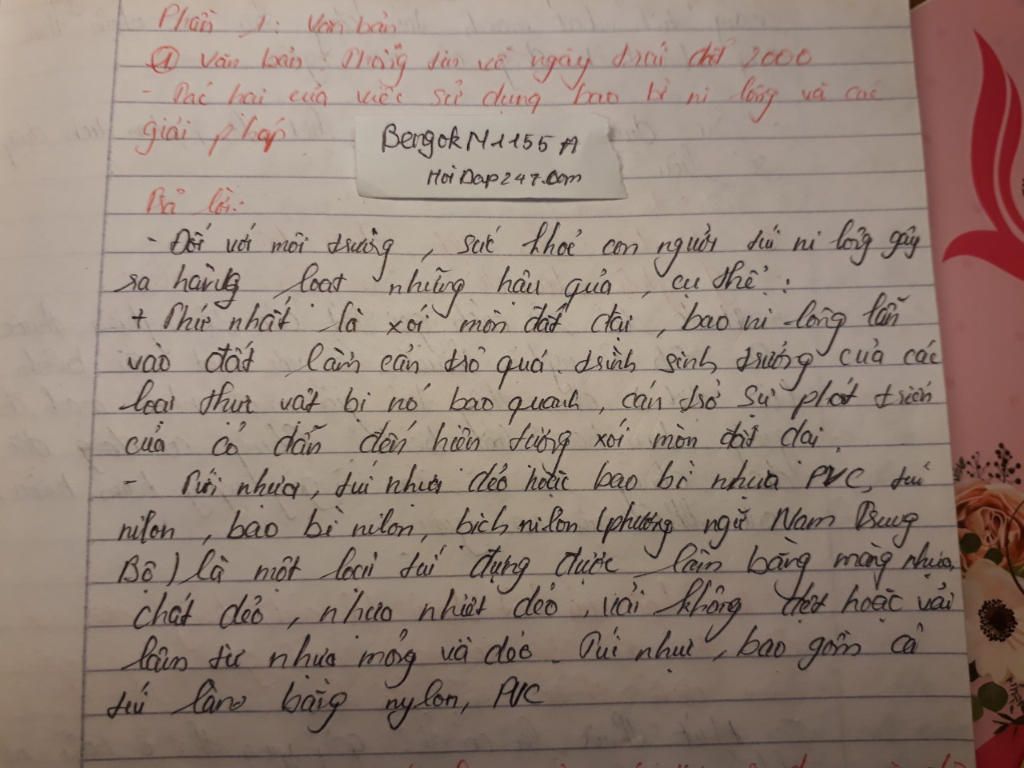 Phần 1: Văn bản
a Văn bản: Thông tin về ngày trái đất 2000
- Tác hại của việc sử dụng bao bì ni lông và các
giải pháp
BengokN1155A
HoiDap247.com
Trả lời:
- Đối với môi trường, sức khoẻ con người túi ni lông gây
ra hàng loạt những hậu quả, cụ thể:
+ Thứ nhất là xói mòn đất đai, bao ni lông lẫn
vào đất làm cản trở quá trình sinh trưởng của các
loại thực vật bị nó bao quanh, cản trở sự phát triển
của cỏ dẫn đến hiện tượng xói mòn đất đai
- Túi nhựa, túi nhựa dẻo hoặc bao bì nhựa PVC, túi
nilon, bao bì nilon, bịch nilon (phương ngữ Nam Trung
Bộ) là một loại túi đựng được làm bằng màng nhựa,
chất dẻo, nhựa nhiệt dẻo, vải không dệt hoặc vải
làm từ nhựa mỏng và dẻo. Túi nhựa, bao gồm cả
túi làm bằng nylon, PVC